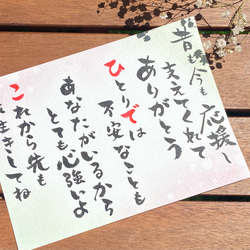 昔も今も
応援し
支えてくれて
ありがとう
ひとりでは
不安なことも
あなたがいるから
とても心強いよ
これから先も
生きしてね